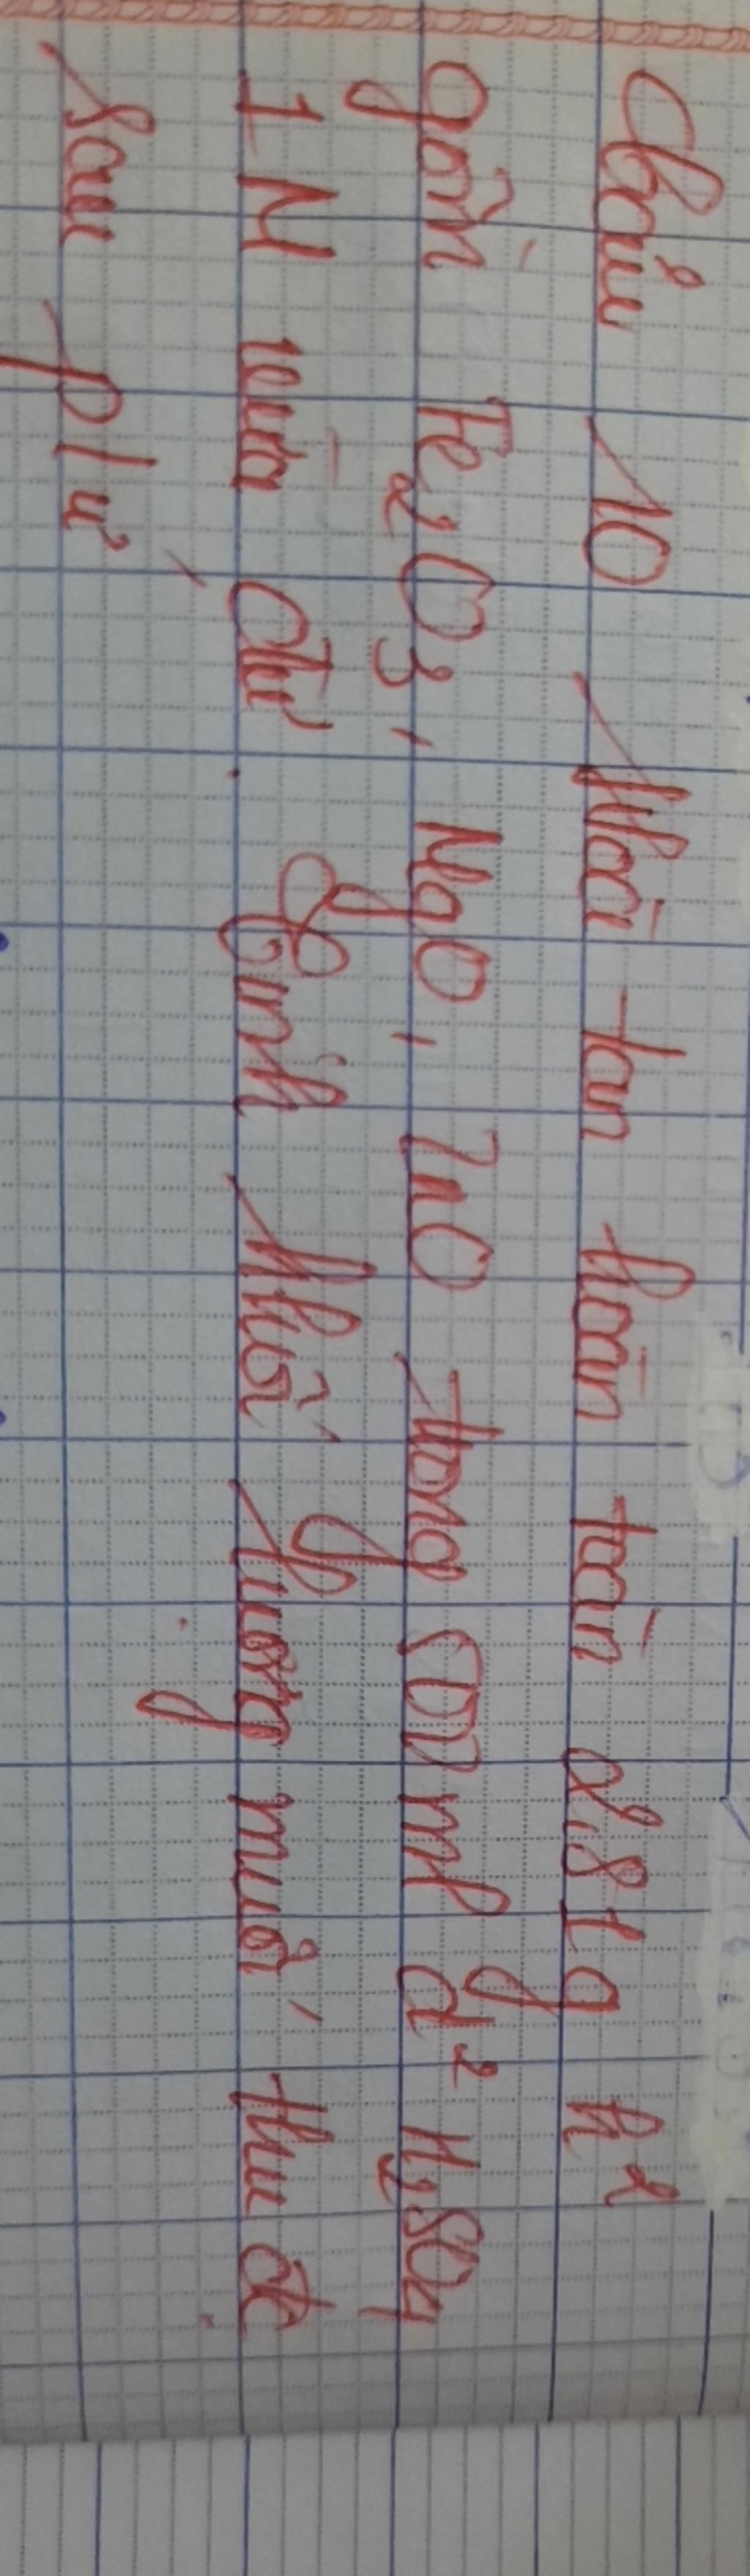 Bài 10 Hoà tan hoàn toàn 2,81g h²
gồm Fe2O3, MgO, ZnO trong 500 ml d² H2SO4
1M vừa đủ. Tính khối lượng muối thu đc
sau p/ư